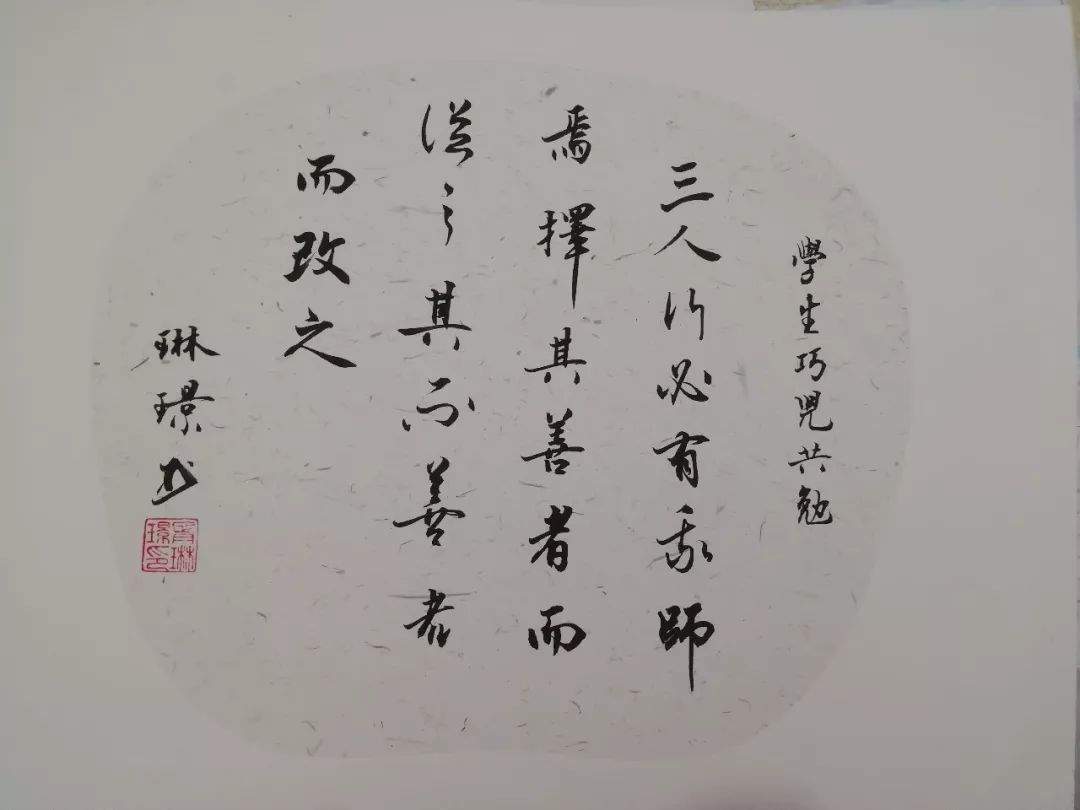 學生巧兒共勉
三人行必有我師
焉擇其善者而
從之其不善者
而改之
琳璟书
胥琳
璟印